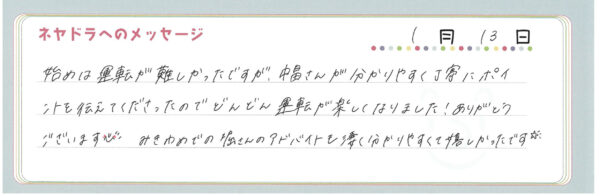 ネヤドラへのメッセージ
1月13日
始めは運転が難しかったですが、中畠さんが分かりやすく丁寧にポイ
ントを伝えてくださったのでどんどん運転が楽しくなりました!ありがとう
ございます みきわめでの堀さんのアドバイトも凄く分かりやすくて嬉しかったです